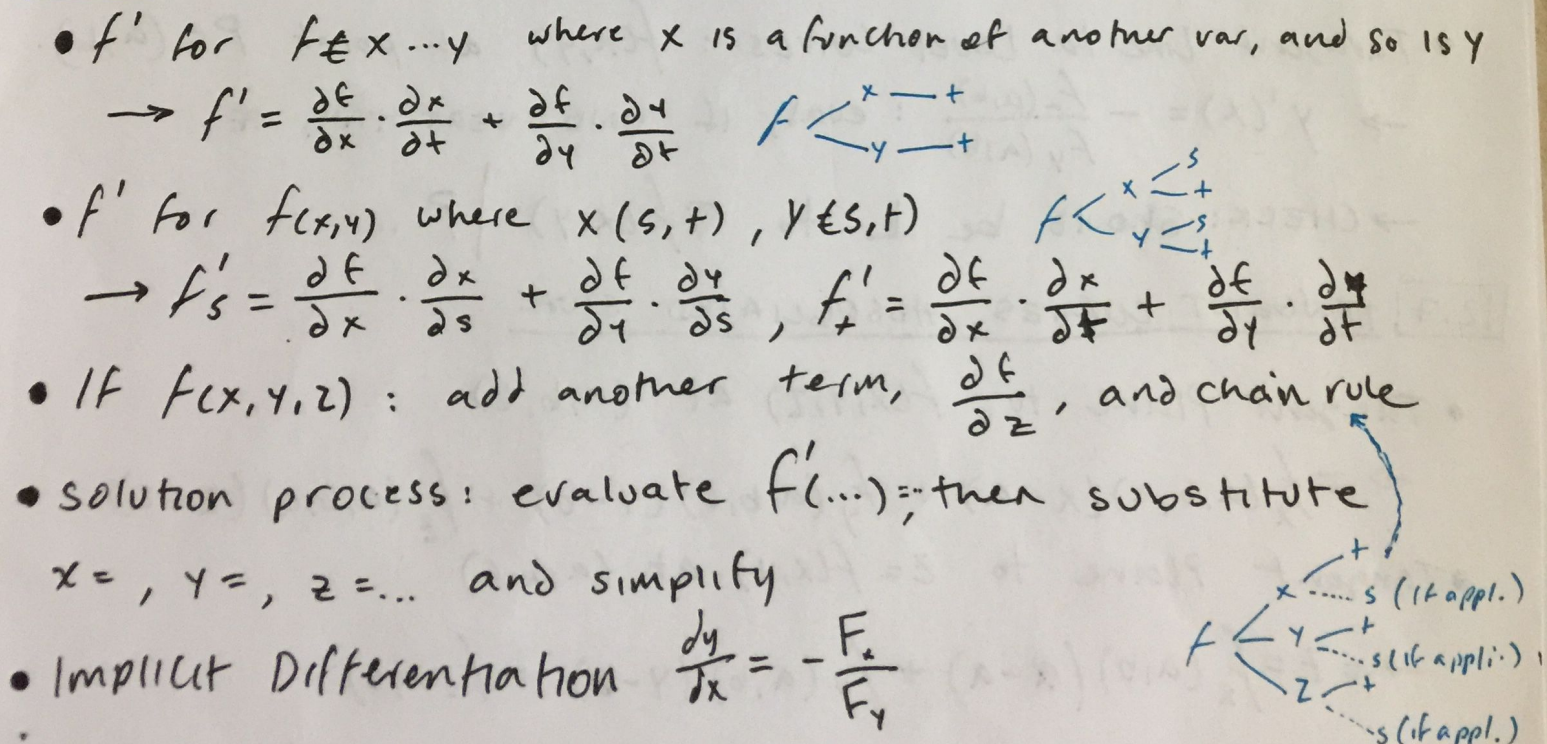 • f' for f(x...y where x is a function of another var, and so is y
→ f' = ∂f/∂x · ∂x/∂t + ∂f/∂y · ∂y/∂t f x t y t
• f' for f(x,y) where x(s,t), y(s,t) f x s t y s t
→ f's = ∂f/∂x · ∂x/∂s + ∂f/∂y · ∂y/∂s, f't = ∂f/∂x · ∂x/∂t + ∂f/∂y · ∂y/∂t
• If f(x,y,z): add another term, ∂f/∂z, and chain rule
• solution process: evaluate f'(...)=, then substitute
x= , y= , z=... and simplify
• Implicit Differentiation dy/dx = - Fx/Fy
f x t s (if appl.)
y t s (if appli.)
z t s (if appl.)